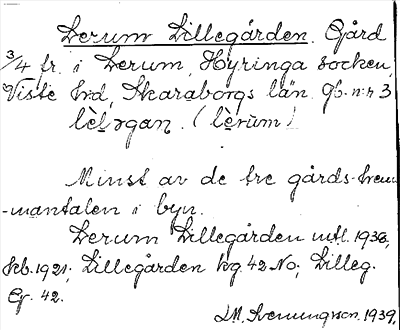 Lerum Lillegården. Gård
3/4 fr. i Lerum, Hyringa socken,
Viste hrd, Skaraborgs län. Gb. n:r 3
(lèrùm)
Minst av de tre gårds-hem-
-mantalen i byn.
Lerum Lillegården mtl. 1936,
kb. 1921; Lillegården hg. 42 No; Lilleg.
42.
1939.